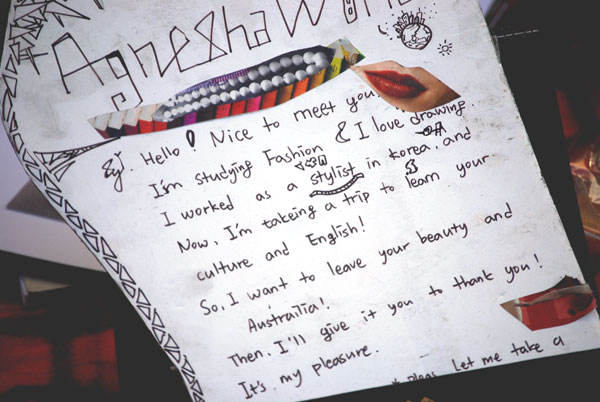 Agnesha
Hello! Nice to meet you.
I'm studying Fashion & I love drawing
I worked as a stylist in Korea. and
Now, I'm takeing a trip to learn your
culture and English!
So, I want to leave your beauty and
Austrailia!
Then, I'll give it you to thank you!
It's my pleasure.
Let me take a